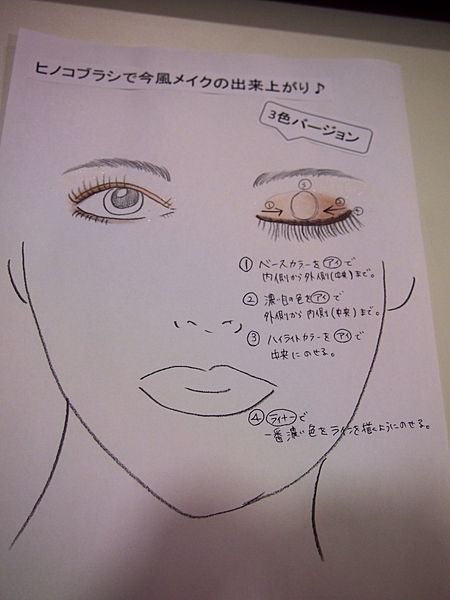 ヒノコブラシで今風メイクの出来上がり♪
3色バージョン
③
① →
← ②
④
① ベースカラーをアイで
内側から外側(中央)まで。
② 濃い目の色をアイで
外側から内側(中央)まで。
③ ハイライトカラーをアイで
中央にのせる。
④ ライナーで
一番濃い色をラインを描くようにのせる。